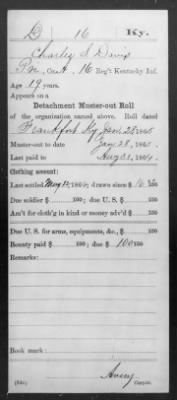 D 16 Ky.
Charles S Davis
Co. A, 16 Reg't Kentucky Inf.
Age 19 years.
Appears on a
Detachment Muster-out Roll
of the organization named above. Roll dated
Frankfort Ky Jan 28 1865
Muster-out to date Jan 28, 1865.
Last paid to Aug 31, 1864.
Clothing account:
Last settled 186 ; drawn since $ 100
Due soldier $ 100; due U. S. $ 100
Am't for cloth'g in kind or money adv'd $ 100
Due U. S. for arms, equipments, &c., $ 100
Bounty paid $ 100; due $ 100 100
Remarks:
Book mark:
Avery
Copyist.